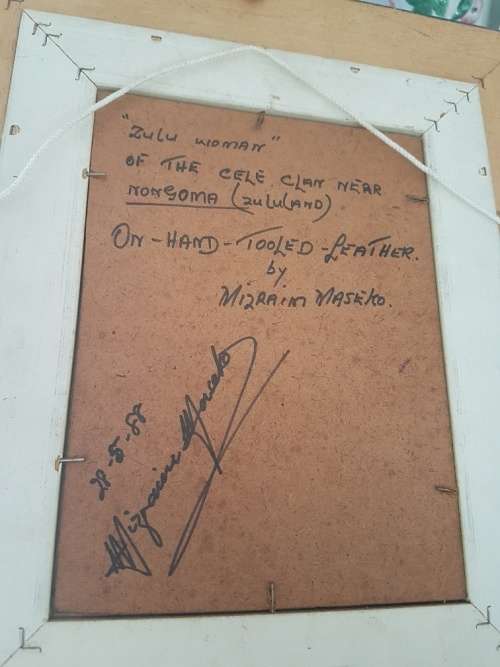 "ZULU WOMAN"
OF THE CELE CLAN NEAR
NONGOMA (ZULULAND)
ON-HAND-TOOLED-LEATHER.
by
MIZRAIM MASEKO.
28-5-88
Mizraim Maseko